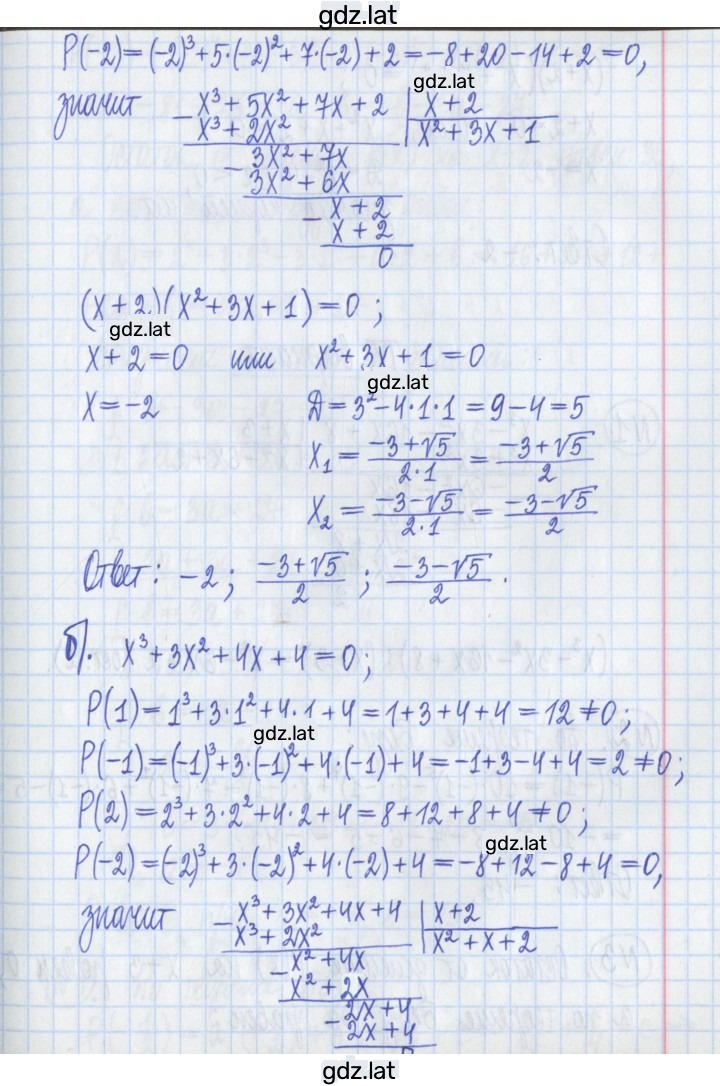 gdz.lat
P(-2)=(-2)³+5·(-2)²+7·(-2)+2=-8+20-14+2=0,
gdz.lat
значит
- x³+5x²+7x+2 | x+2
x³+2x² | x²+3x+1
- 3x²+7x
3x²+6x
- x+2
x+2
0
(x+2)(x²+3x+1)=0;
gdz.lat
x+2=0 или x²+3x+1=0
gdz.lat
x=-2 Д=3²-4·1·1=9-4=5
x₁=(-3+√5)/(2·1)=(-3+√5)/2
x₂=(-3-√5)/(2·1)=(-3-√5)/2
Ответ: -2; (-3+√5)/2; (-3-√5)/2.
б). x³+3x²+4x+4=0;
P(1)=1³+3·1²+4·1+4=1+3+4+4=12≠0;
gdz.lat
P(-1)=(-1)³+3·(-1)²+4·(-1)+4=-1+3-4+4=2≠0;
P(2)=2³+3·2²+4·2+4=8+12+8+4≠0;
gdz.lat
P(-2)=(-2)³+3·(-2)²+4·(-2)+4=-8+12-8+4=0,
значит
- x³+3x²+4x+4 | x+2
x³+2x² | x²+x+2
- x²+4x
x²+2x
- 2x+4
2x+4
0
gdz.lat